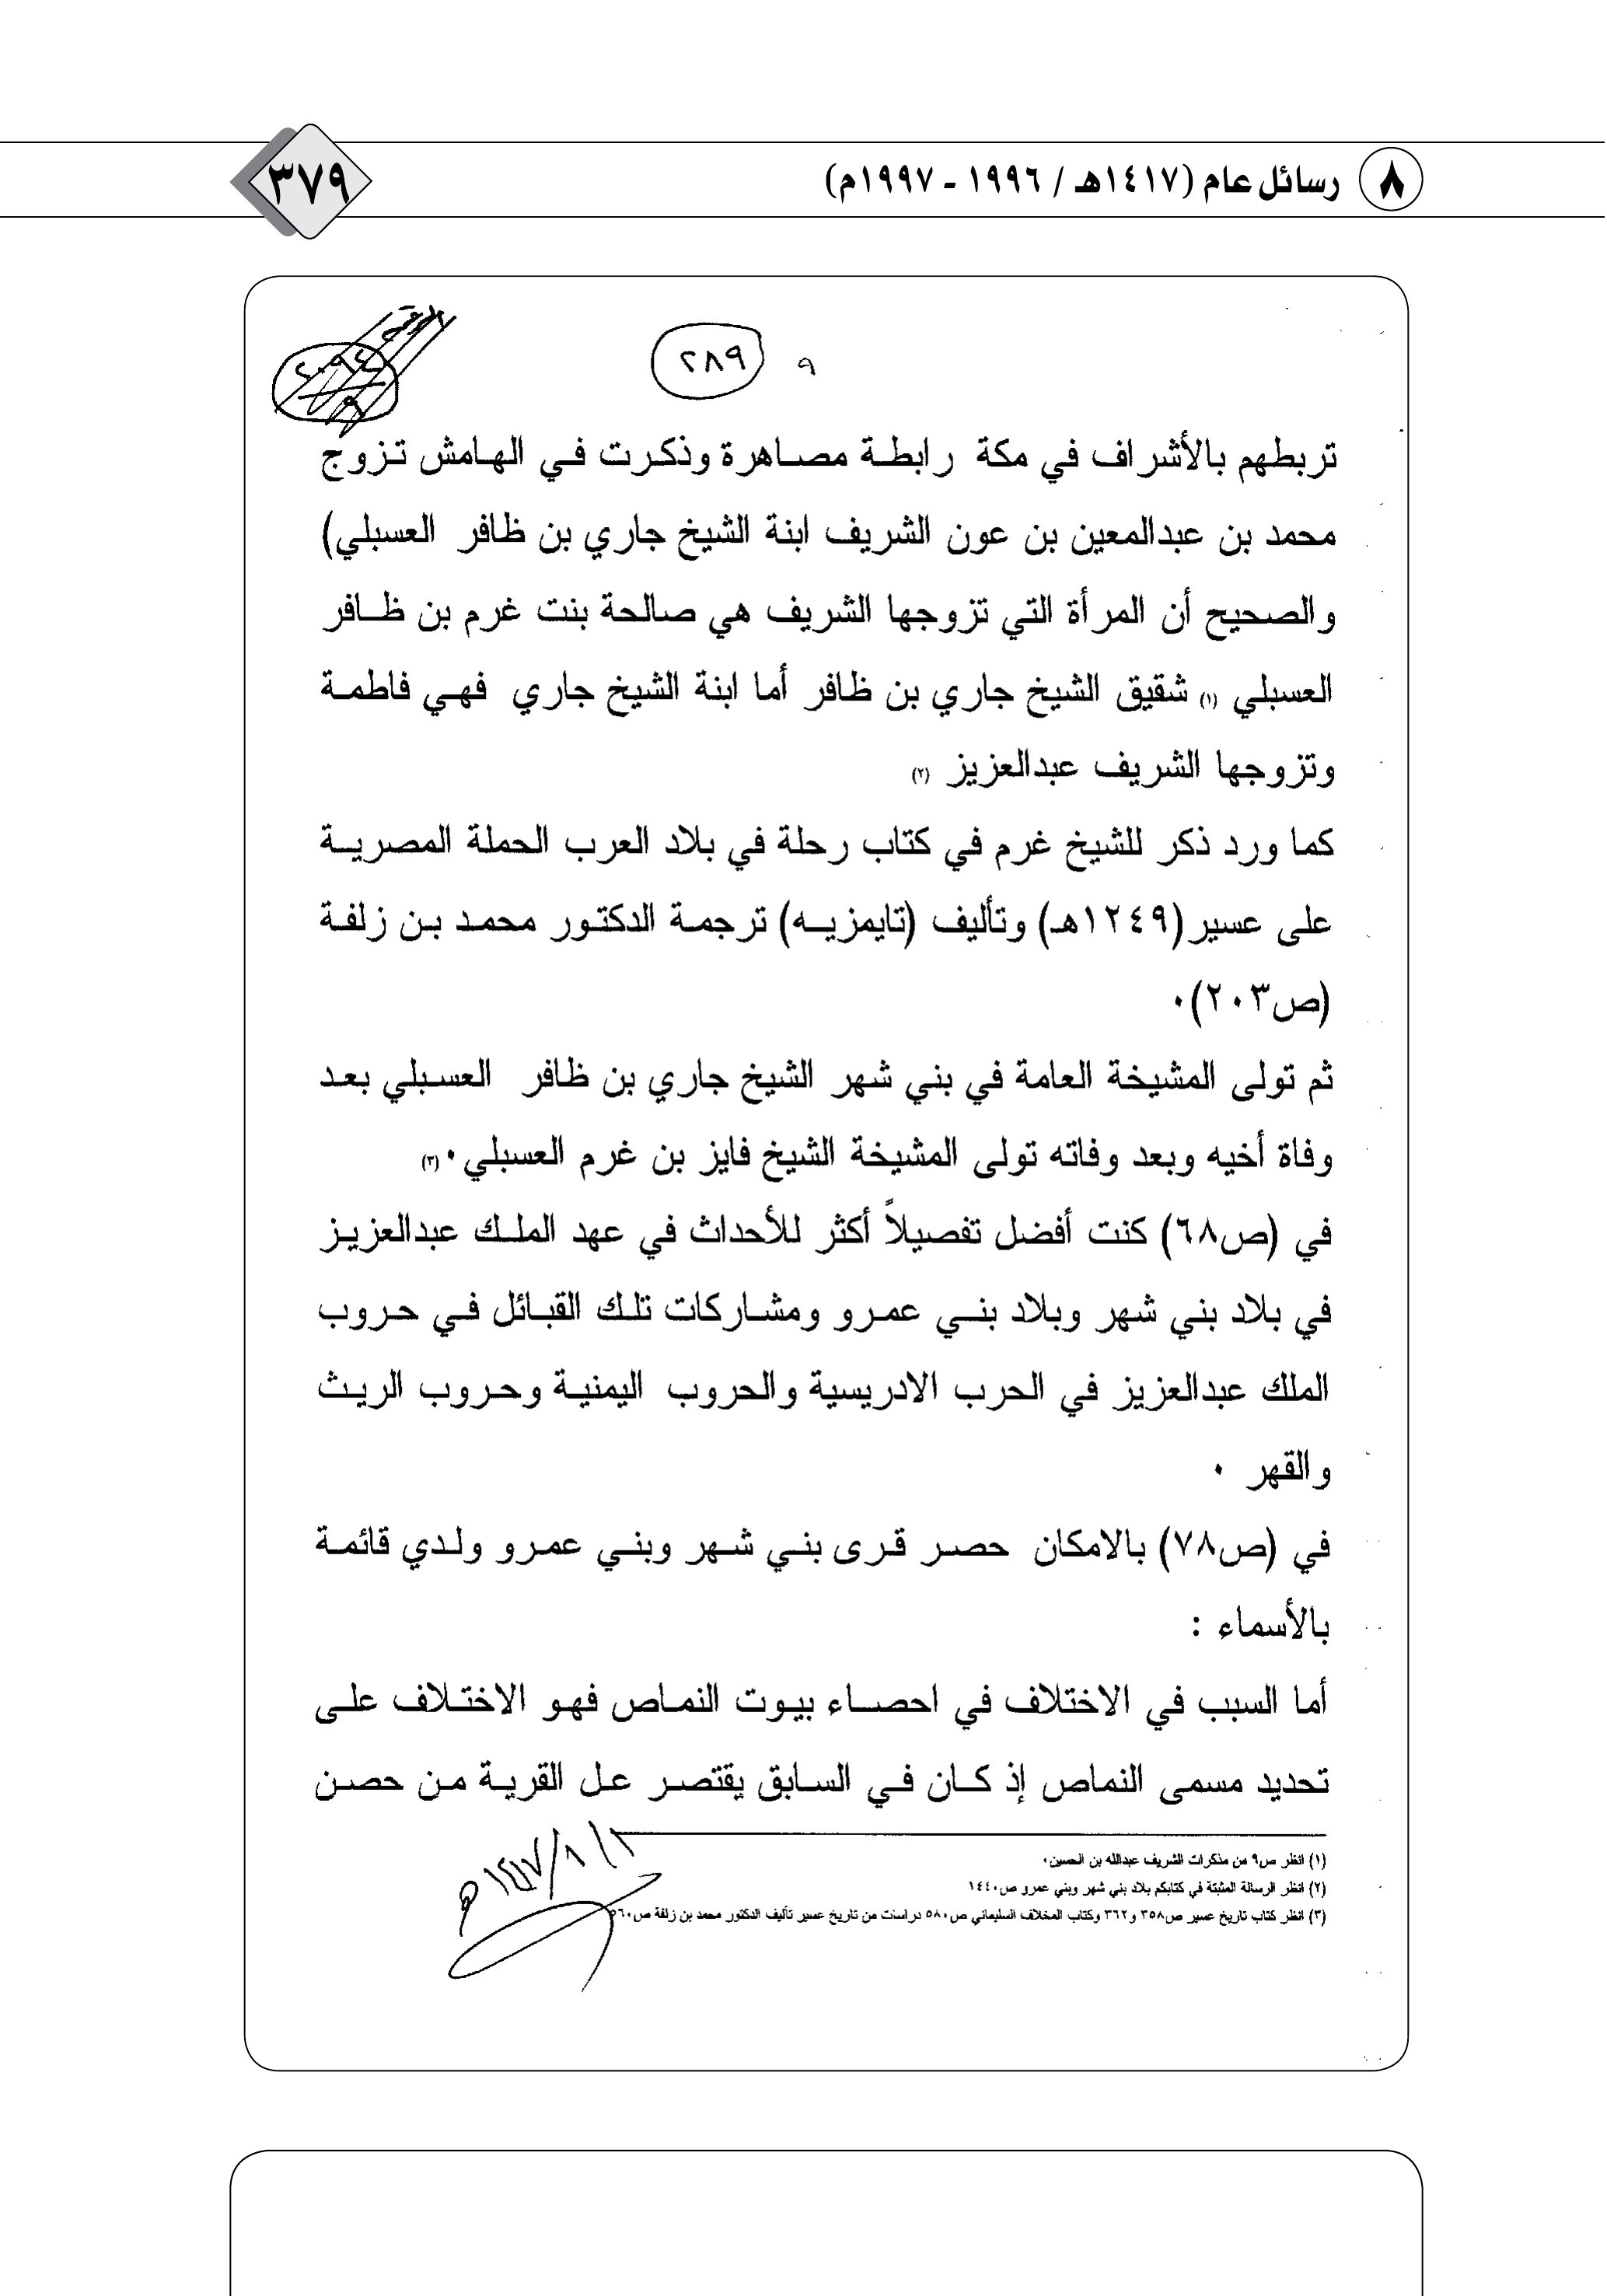 ٨ رسائل عام (١٤١٧هـ / ١٩٩٦ - ١٩٩٧م)
٣٧٩
٩ ٢٨٩
تربطهم بالأشراف في مكة رابطة مصاهرة وذكرت في الهامش تزوج
محمد بن عبدالمعين بن عون الشريف ابنة الشيخ جاري بن ظافر العسبلي)
والصحيح أن المرأة التي تزوجها الشريف هي صالحة بنت غرم بن ظافر
العسبلي (١) شقيق الشيخ جاري بن ظافر أما ابنة الشيخ جاري فهي فاطمة
وتزوجها الشريف عبدالعزيز (٢)
كما ورد ذكر للشيخ غرم في كتاب رحلة في بلاد العرب الحملة المصرية
على عسير (١٢٤٩هـ) وتأليف (تايمزيه) ترجمة الدكتور محمد بن زلفة
(ص٢٠٣)٠
ثم تولى المشيخة العامة في بني شهر الشيخ جاري بن ظافر العسبلي بعد
وفاة أخيه وبعد وفاته تولى المشيخة الشيخ فايز بن غرم العسبلي٠(٣)
في (ص٦٨) كنت أفضل تفصيلاً أكثر للأحداث في عهد الملك عبدالعزيز
في بلاد بني شهر وبلاد بني عمرو ومشاركات تلك القبائل في حروب
الملك عبدالعزيز في الحرب الادريسية والحروب اليمنية وحروب الريث
والقهر ٠
في (ص٧٨) بالامكان حصر قرى بني شهر وبني عمرو ولدي قائمة
بالأسماء :
أما السبب في الاختلاف في احصاء بيوت النماص فهو الاختلاف على
تحديد مسمى النماص إذ كان في السابق يقتصر عل القرية من حصن
(١) انظر ص٩ من مذكرات الشريف عبدالله بن الحسين٠
(٢) انظر الرسالة المثبتة في كتابكم بلاد بني شهر وبني عمرو ص١٤٤٠
(٣) انظر كتاب تاريخ عسير ص٣٥٨ و٣٦٢ وكتاب المخلاف السليماني ص٥٨٠ دراسات من تاريخ عسير تأليف الدكتور محمد بن زلفة ص٥٦٠